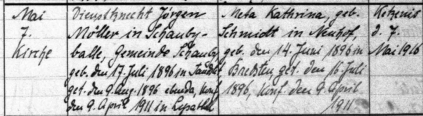 Mai
7.
Kirche
Dienstknecht Jörgen
Möller in Schauby-
balle, Gemeinde Schauby
geb. den 17. Juli 1896 in
get. den 9. Aug. 1896 ebenda, konf.
den 9. April 1911 in Lysabbel
Meta Kathrina, geb.
Schmidt in Neuhof,
geb. den 14. Juni 1896 in
Bredsten get. den 16. Juli
1896, konf. den 9. April
1911
Ketenis
d. 7.
Mai 1916